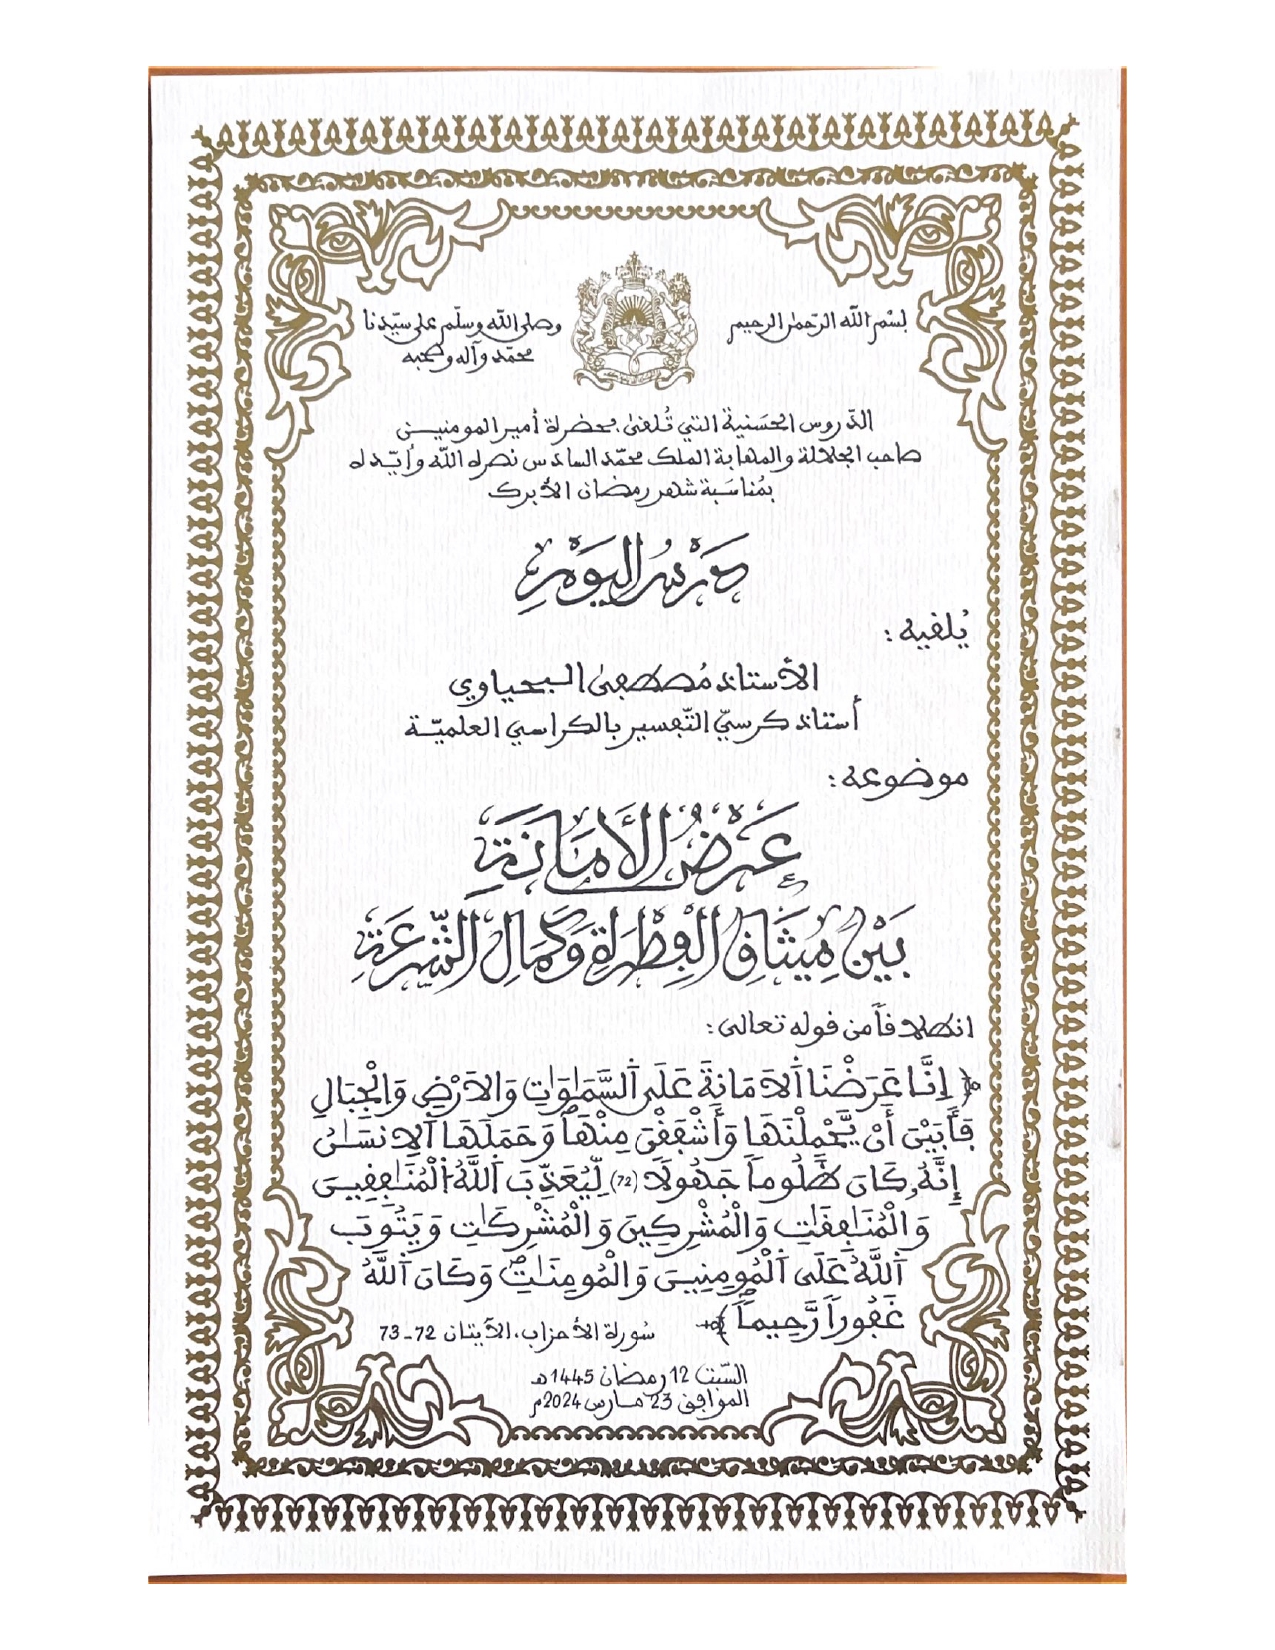 بسم الله الرحمن الرحيم
وصلى الله وسلم على سيّدنا
محمّد وآله وصحبه
الدّروس الحسَنية التي تُلقى بحضرة أمير المومنيــن
صاحب الجلالة والمهابة الملك محمّد السادس نصره الله وأيّده
بمُناسَبة شهر رمضان الأبرك
دَرْسُ اليَوْمِ
يُلقيه :
الأستاذ مُصطفى البحياوي
أستاذ كرسيّ التّفسير بالكراسي العلميّــة
موضوعه :
عَرْضُ الأَمَانَةِ
بَيْنَ مِيثَاقِ الْفِطْرَةِ وَكَمَالِ الشِّرْعَةِ
انطلاقاً من قوله تعالى :
﴿ إِنَّا عَرَضْنَا اَلاَمَانَةَ عَلَى اَلسَّمَٰوَٰتِ وَالاَرْضِ وَالْجِبَالِ
فَأَبَيْنَ أَنْ يَّحْمِلْنَهَا وَأَشْفَقْنَ مِنْهَاۖ وَحَمَلَهَا اَلاِنسَٰنُ
إِنَّهُۥ كَانَ ظَلُوماً جَهُولاً (72) لِّيُعَذِّبَ اَللَّهُ اُلْمُنَٰفِقِيــنَ
وَالْمُنَٰفِقَٰتِ وَالْمُشْرِكِينَ وَالْمُشْرِكَٰتِ وَيَتُوبَ
اَللَّهُ عَلَى اَلْمُومِنِيــنَ وَالْمُومِنَٰتِۖ وَكَانَ اَللَّهُ
غَفُوراً رَّحِيماًۖ ﴾
سُورة الأحزاب، الآيتان 72-73
السّبت 12 رمضان 1445هـ
الموافق 23 مــارس 2024م